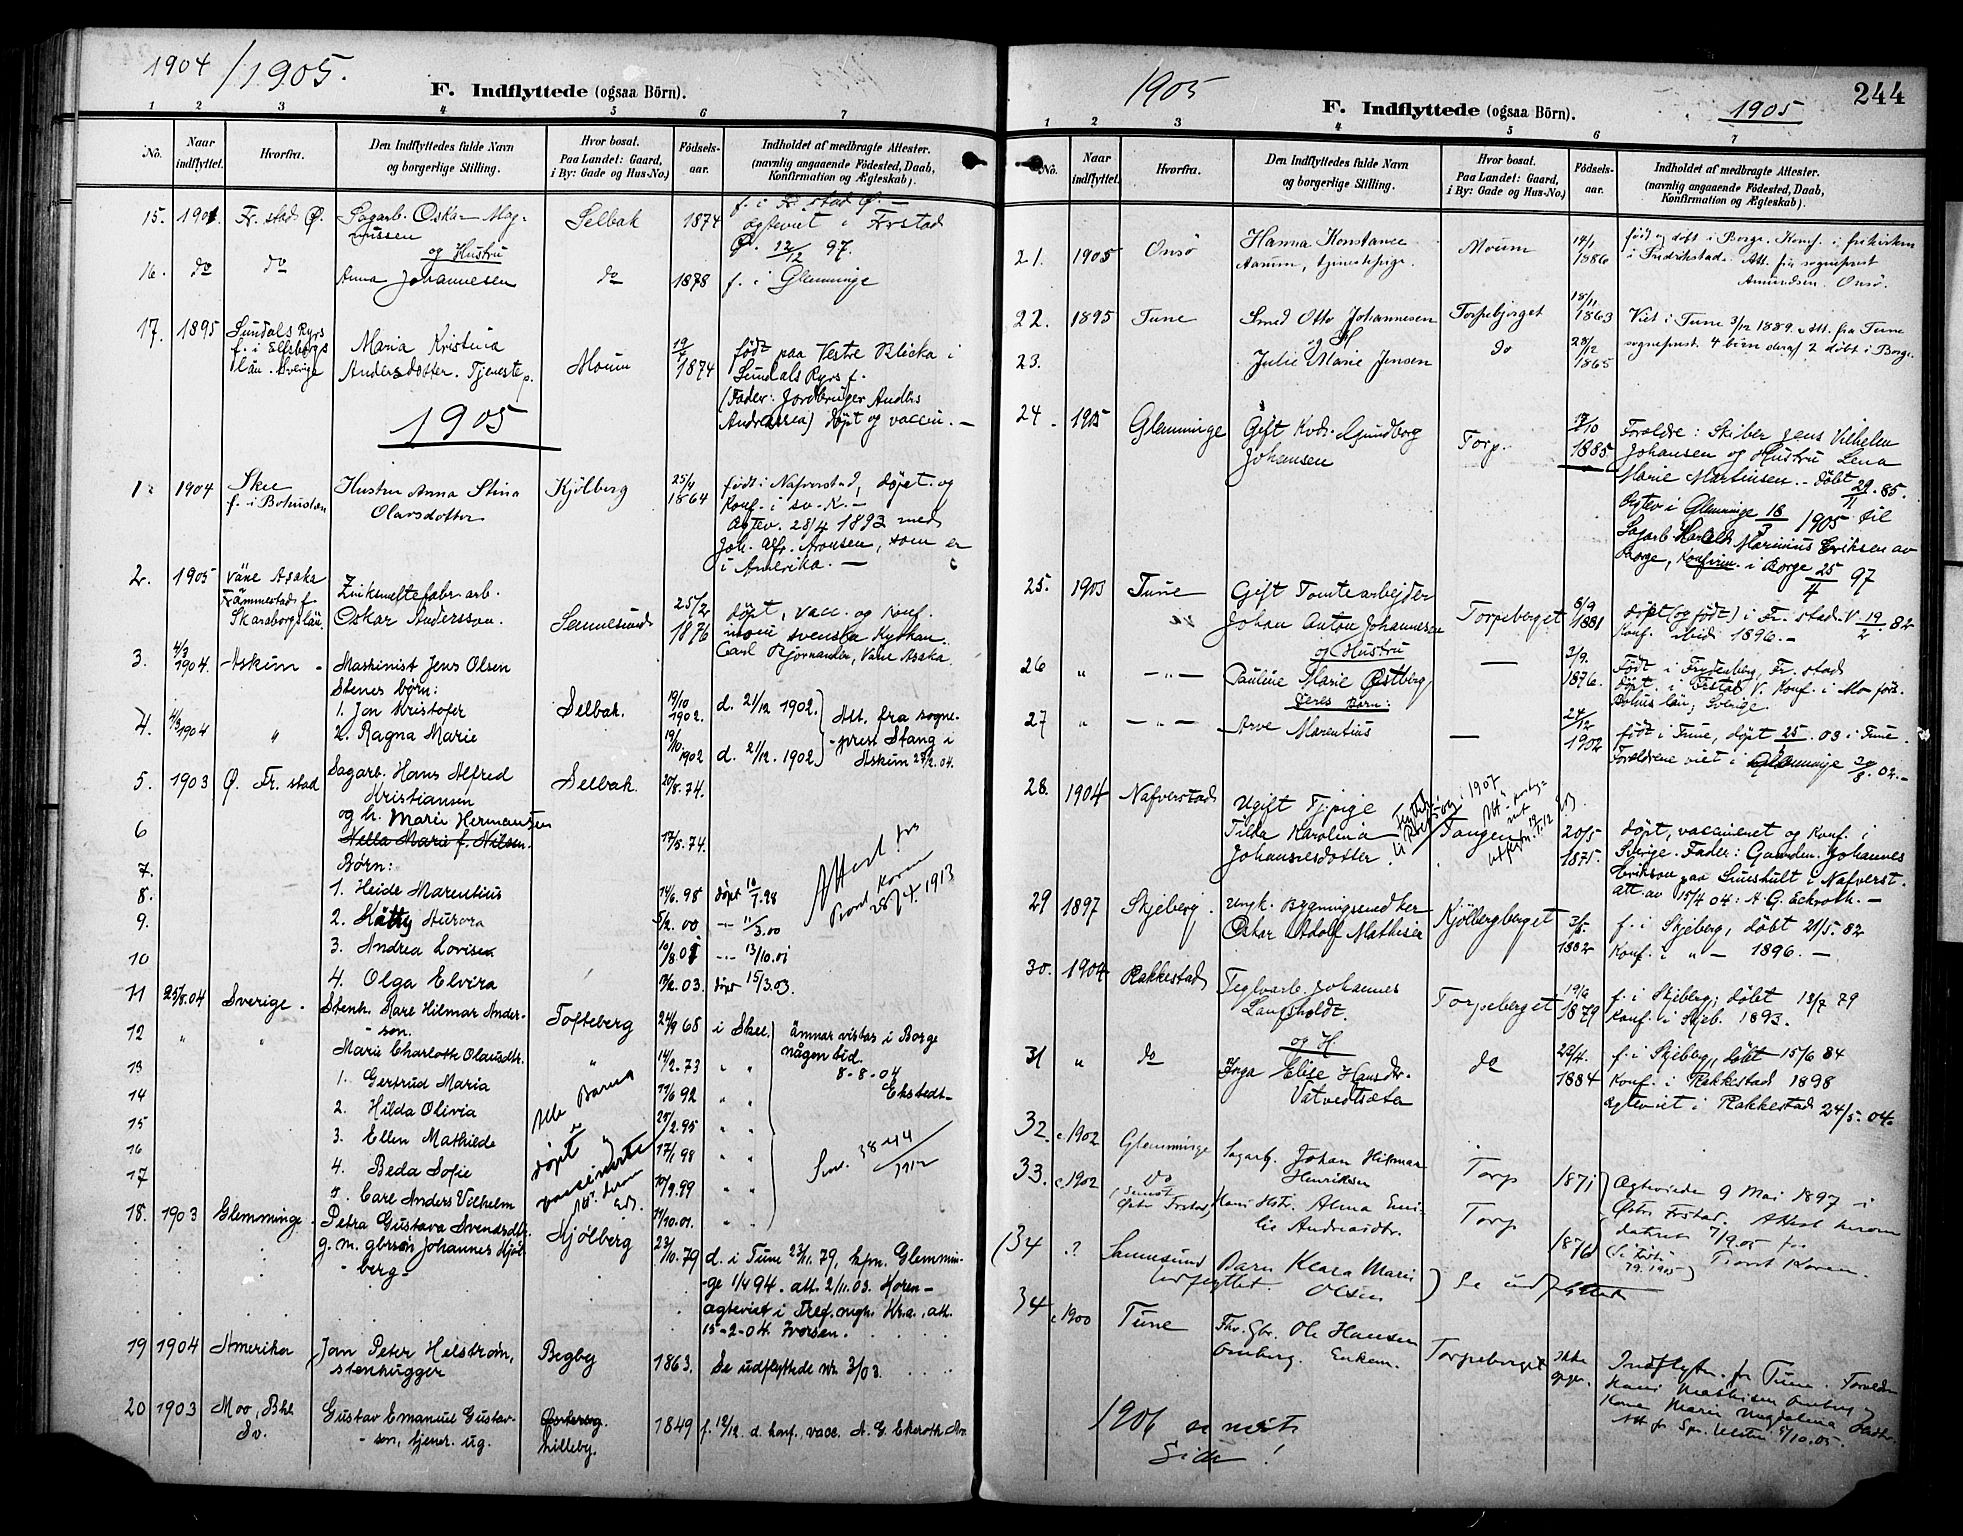 1904 / 1905.
F. Indflyttede (ogsaa Börn).
1 2 3 4 5 6 7
No.
Naar indflyttet.
Hvorfra.
Den Indflyttedes fulde Navn og borgerlige Stilling.
Hvor bosat. Paa Landet: Gaard, i By: Gade og Hus-No.)
Fødsels-aar.
Indholdet af medbragte Attester. (navnlig angaaende Födested, Daab, Konfirmation og Ægteskab).
15. 1901 Fr. stad Ø. Sagarb. Oskar Mag- Selbak 1874 f. i Fr. stad Ø. —
nussen ægteviet i Frstad
og Hustru Ø. 12/12 97.
16. do do Anna Johannesen do 1878 f. i Glemminge
17. 1895 Sundals Ryrs Maria Kristina Moum 19/7 1874 født paa Vestre Blicka i
f. i Elfsborgs Andersdotter. Tjenestep. Sundals Ryrs f.
län. Sverige (Fader: Jordbruger Anders
Andreassen) døpt og vaccin. —
1905
1. 1904 Skee Hustru Anna Stina Kjölberg 25/4 1864 født i Nafverstad, døpt og
f. i Bohuslän Olavsdotter Konf. i sv. K. —
Ægtev. 28/4 1893 med
Joh. Alfr. Aronsen, som er
i Amerika. —
2. 1905 Väne Asaka Zinkemeltefabr. arb. 25/2 1876 døpt, vacc. og Konf.
Skaraborgs län. Oskar Andersson. Sannesund inom svenska Kyrkan.
Carl Björnander, Väne Asaka.
3. 4/3 1904. Askim Maskinist Jens Olsen
Stenes børn:
1. Jon Kristofer Selbak. 19/10 1902. d. 21/12 1902. Att. fra sogne-
4. 4/3 1904 " 2. Ragna Marie 19/10 1902 d. 21/12. 1902. prest Stang i
Askim
5. 1903 Ø. Fr. stad Sagarb. Hans Alfred Selbak 20/8. 74.
Kristiansen
6 og h. Marie Hermansen 17/8. 74.
Hella Marie f. Nilsen.
7. Børn:
8. 1. Heide Marentius 14/6. 98 døpt 10/7. 98
9. 2. Kätty Aurora 5/2. 00 — " /3. 00
10 3. Andrea Lovise 10/8 01 13/10. 01
4. Olga Elvira 03. døpt 15/3. 03.
Attest fra
Prost Koren
28/4. 1913
11 25/8. 04 Sverige. Stenh. Kare Hilmar Ander- Tofteberg 24/9 68 i Skee. ämnar vistas i Borge
son. någon tid.
12 " " Marie Charlotte Olausdtr. " 14/2. 73 8-8-04
13 1. Gertrud Maria 92 Ekstedt
14 2. Hilda Olivia 25/2. 95
15 3. Ellen Mathilde 17/1 98
16 4. Beda Sofie 10/9. 99
17 5. Carl Anders Vilhelm 11/10. 01.
Alle Barna
døpt
vaccinerte
18. 1903 Glemminge Petra Gustava Svendsdtr. Kjølberg 23/10. 79 d. i Tune 23/11. 79, kfm. Glemmin-
g. m. gbrsøn Johannes Kjöl- ge 1/4 94. att. 2/11. 03. Horen —
berg. ægteviet i Tref. mgh. Kra., att.
15-2-04 Iversen.
19 1904 Amerika Jan Peter Helström, Begby 1863. Se udflyttede nr. 3/03.
stenhugger
20 1903 Moo, Bhl. Gustav Emanuel Gustav- 1849 f. 12/12. d. konf., vacc. A. G. Ekeroth
Sv. son, tjener. ug. Lilleby.
1905
F. Indflyttede (ogsaa Börn).
1905
244
1 2 3 4 5 6 7
No.
Naar indflyttet.
Hvorfra.
Den Indflyttedes fulde Navn og borgerlige Stilling.
Hvor bosat. Paa Landet: Gaard, i By: Gade og Hus-No.)
Fødsels-aar.
Indholdet af medbragte Attester. (navnlig angaaende Födested, Daab, Konfirmation og Ægteskab).
21. 1905 Onsö Hanna Konstance Moum 14/1 1886 født og døbt i Borge. Konf. i frikirken
Aarum, tjenestepige. i Fredrikstad. Att. fra sogneprest
Amundsen. Onsö.
22. 1895 Tune Smed Otto Johannesen Torpebjerget 18/11 1863 Viet i Tune 3/12 1889. Att. fra Tune
og H sogneprest. 4 børn deraf 2 døbt i Borge.
23. Julie Marie Jensen do 28/12 1865
24. 1905 Glemminge Gift Kvd. Gjundborg Torp. 17/10 1885 Foreldre: Skiber Jens Vilhelm
Johansen Johansen og Hustru Lena
Marie Martinsen. — Døbt 29/11. 85.
Ægtev i Glemminge 18/3 1905 til
Sagarb. Harald Marinius Eriksen av
Borge, Konfirm. i Borge 25/4 97
25. 1903 Tune Gift Tomtearbejder Torpeberget 8/9 1881 døpt (og født) i Fr. stad. V. 19/2. 82
Johan Anton Johannesen Konf. ibid. 1896. —
og Hustru
26 " — " — Pauline Marie Østberg — 2/9. 1876. Født i Frydenberg, Fr. stad
Deres Børn: døpt i Frstad V. Konf. i Mo förs.
Bohus län, Sverige.
27 " — " — Arve Marentius — 24/12 1902 født i Tune, døpt 25/ 03 i Tune.
Forældrene viet i Glemminge 20/8. 02. —
28. 1904 Nafverstad Ugift Tjpige Tangen 20/5 1875. døpt, vaccineret og Konf. i
Tilda Karolina Sverige. Fader: Gaarden. Johannes
Johannesdotter. Erikson paa Smeshult i Nafverst.
att. av 15/4 04: A G Eckroth. —
29 1897 Skjeberg. Ungk. Bygningssnedker Kjölbergberget 3/5 1882 f. i Skjeberg, døbt 21/5. 82
Oskar Adolf Mathisen Konf. i " — 1896. —
30. 1904 Rakkestad Teglvarb. Johannes Torpeberget 19/6 1879 f. i Skjeberg, døbt 13/7 79
Langsholdt. Konf. i Skjeb. 1893.
og H
31 " do Inga Elise Hansdtr. do 29/4. 1884 f. i Skjeberg, døbt 15/6 84
Vatvedtsæter Konf. i Rakkestad 1898
Ægteviet i Rakkestad 24/5. 04.
32. c. 1902 Glemminge Sagarb. Johan Hilmar Torp 1871 Ægteviede 9 Mai 1897 i
Henriksen Østre Frstad. Attest herom
33. c. 1902 do Hans Hstr. Alma Emi- Torp 1876 datert 7/9. 05 fra
(senest lie Andreasdtr. Prost Koren.
Østre Frstad)
(34 .? Sannesund Barn Klara Marie Se udflyttede
Indflyttet. Olsen
34 c. 1900 Tune Fhv. Gbr. Ole Hansen Torpeberget ikke opgiv. Indflytt. fr Tune. Forældre
Omberg. Enkem. Hans Mathisen Omberg og
Kone Maren Magdalena
Att fr Spr. 5/10. 05.
1906 se næste
Side!